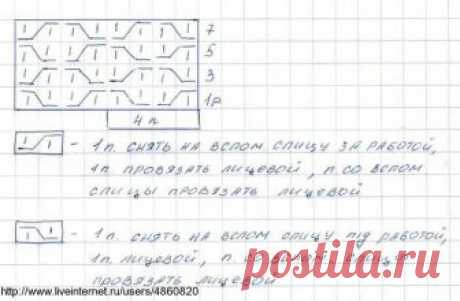 7
5
3
1р
4 п
- 1п. снять на вспом спицу за работой,
1п. провязать лицевой, п. со вспом
спицы провязать лицевой
- 1п. снять на вспом спицу під работой,
1п лицевой, п. со вспом. спицы
провязать лицевой
постила.ru
http://www.liveinternet.ru/users/4860820